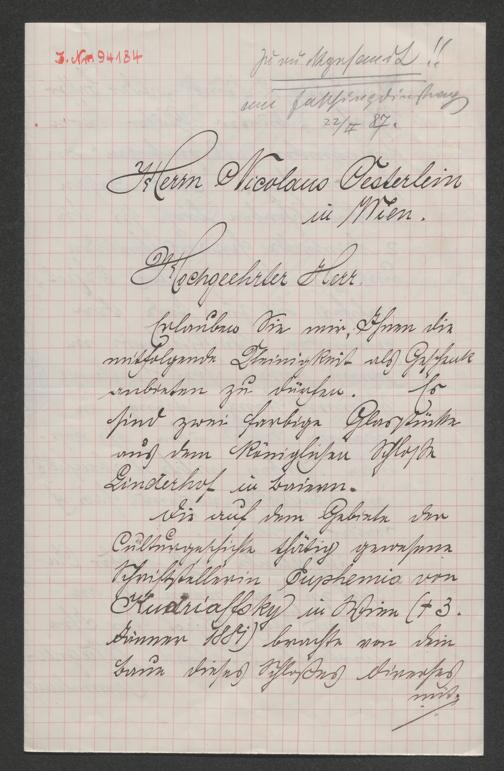 J. Nr. 94134
Zurückgesandt!!
am Faschingdienstag
22/II 87.
Herrn Nicolaus Oesterlein
in Wien.
Hochgeehrter Herr
Erlauben Sie mir, Ihnen die
mitfolgende Kleinigkeit als Geschenk
anbieten zu dürfen. Es
sind zwei farbige Glasstücke
aus dem königlichen Schloße
Linderhof in Baiern.
Die auf dem Gebiete der
Culturgeschichte thätig gewesene
Schriftstellerin Euphemia von
Kudriaffsky in Wien († 3.
Jänner 1881) brachte von dem
Baue dieses Schloßes diverses
mit,